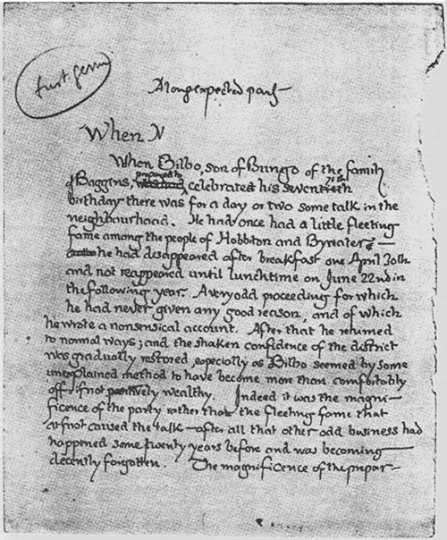 first germ
A long expected party
When
When Bilbo, son of Bungo of the family
prepared to
of Baggins, celebrated his seventieth
birthday there was for a day or two some talk in the
neighbourhood. He had once had a little fleeting
fame among the people of Hobbiton and Bywater –
he had disappeared after breakfast one April 30th
and not reappeared until lunchtime on June 22nd in
the following year. A very odd proceeding for which
he had never given any good reason, and of which
he wrote a nonsensical account. After that he returned
to normal ways; and the shaken confidence of the district
was gradually restored, especially as Bilbo seemed by some
unexplained method to have become more than comfortably
off, if not positively wealthy. Indeed it was the magni-
ficence of the party rather than the fleeting fame that
at first caused the talk – after all that other odd business had
happened some twenty years before and was becoming
decently forgotten. The magnificence of the prepar-